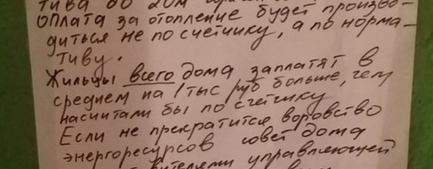 тива до 20м
Оплата за отопление будет произво-
диться не по счетчику, а по норма-
тиву.
Жильцы всего дома заплатят в
среднем на 1 тыс руб больше, чем
насчитали бы по счетчику
Если не прекратится воровство
энергоресурсов совет дома
управляющей